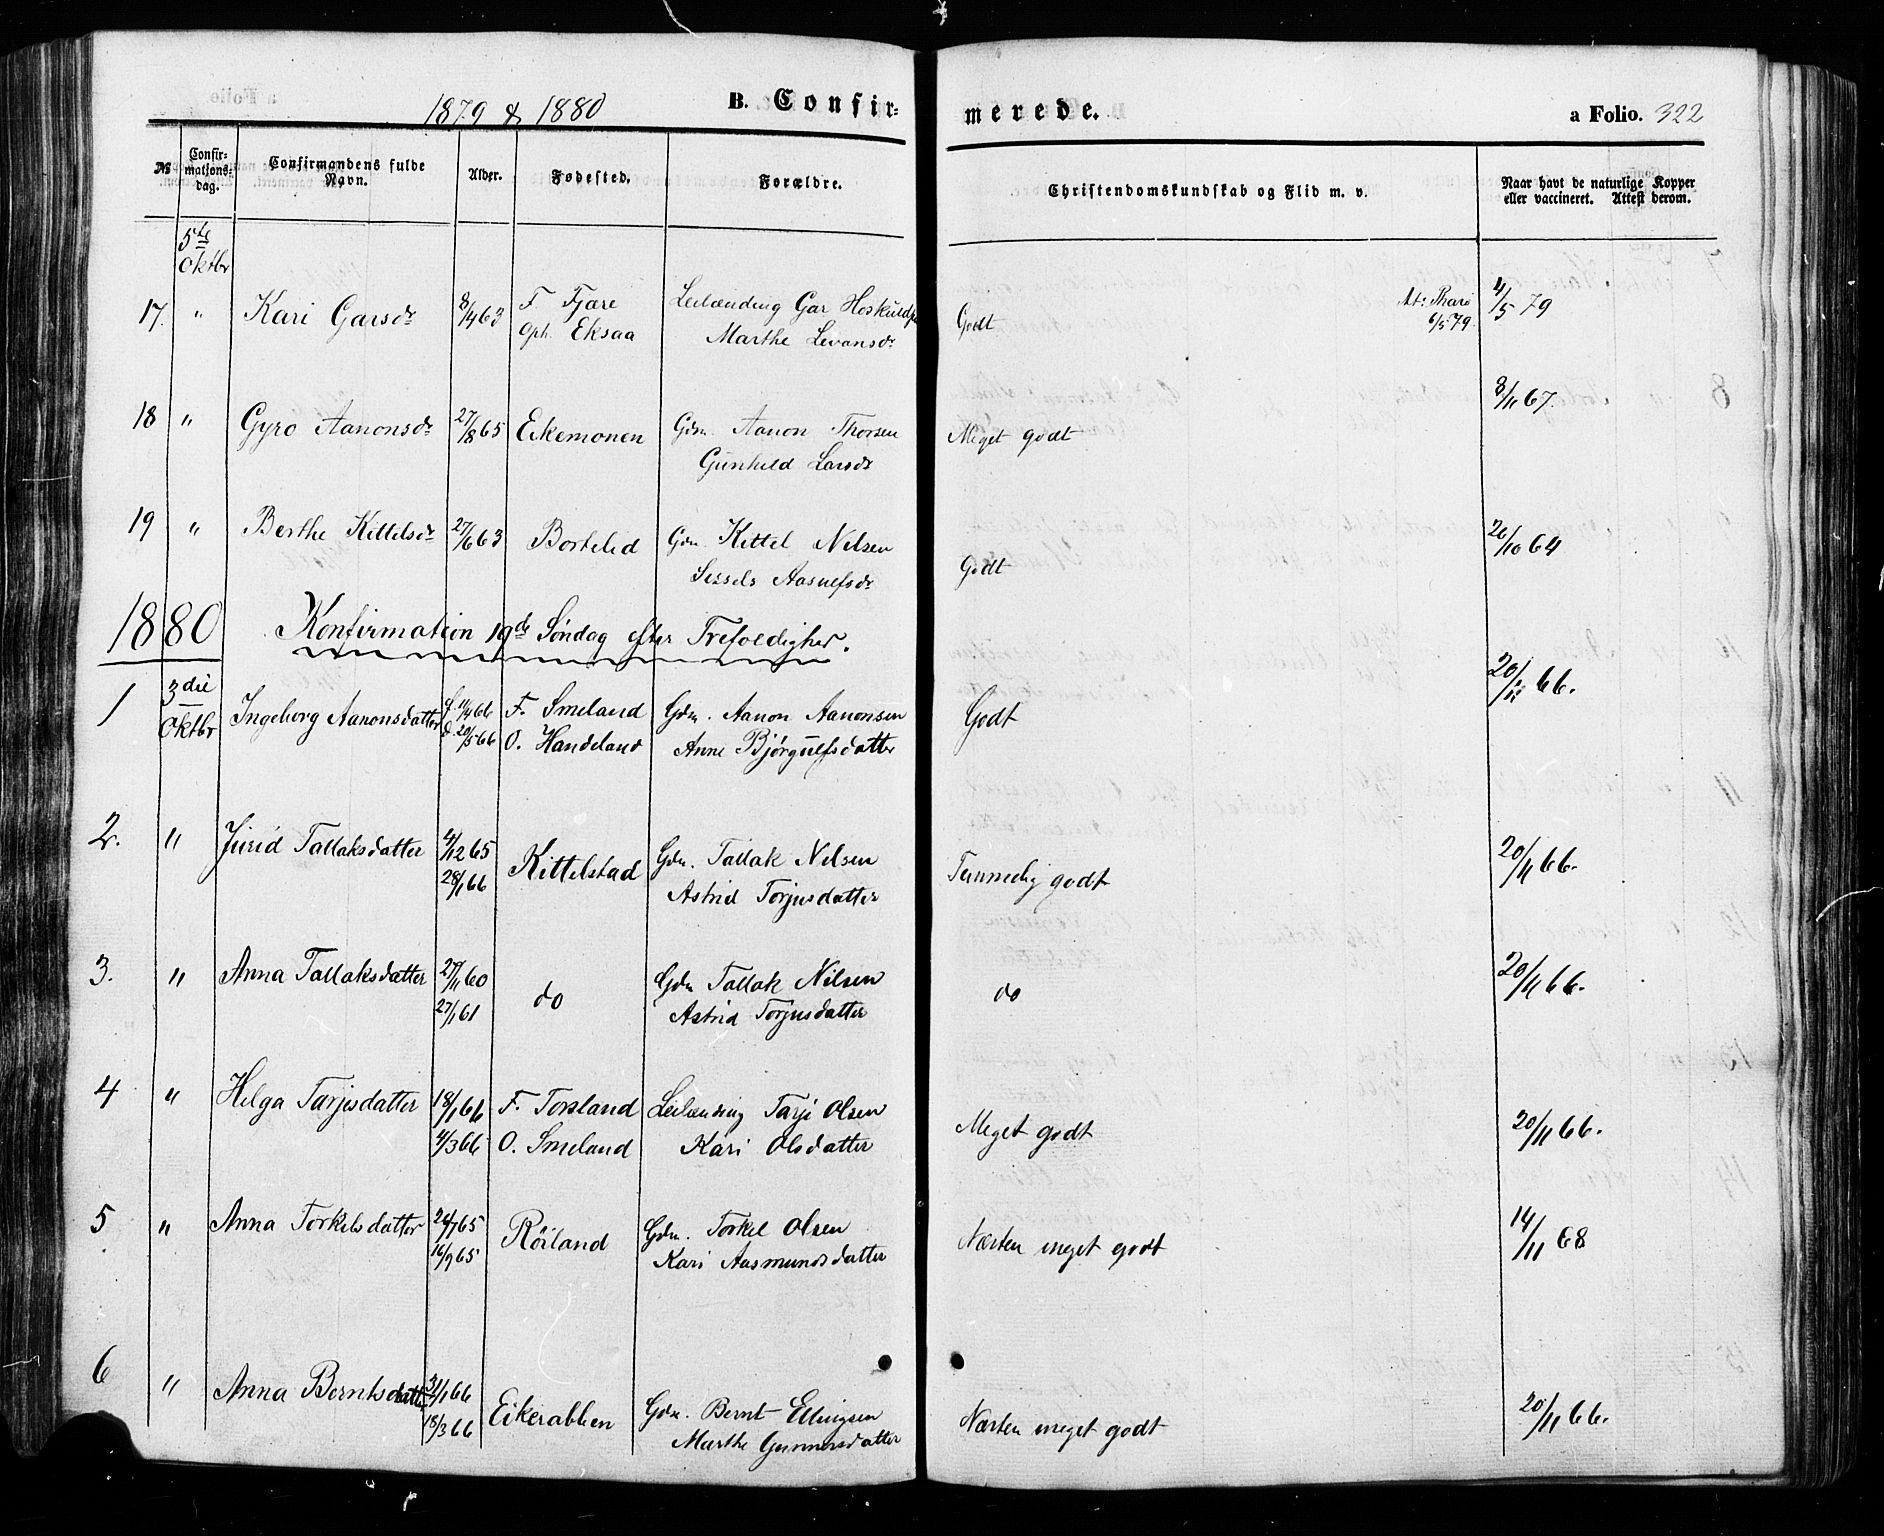 1879 & 1880 B. Confir-merede. a Folio. 322
№ Confir-mations-dag. Confirmandens fulde Navn. Alder. Fødested. Forældre. Christendomskundskab og Flid m. v. Naar havt de naturlige Kopper eller vaccineret. Attest derom.
5te Oktbr
17. " Kari Garsdr 8/4 63 F Fjære Leilænding Gar At: 4/5 79
oph. Eksaa Marthe Levansdr Godt 6/5 79.
18 " Gyro Aanonsdr 27/8 65 Eikemonen Gdm. Aanon Thorsen Meget godt 8/11 67.
Gunhild Larsdr
19 " Berthe Kittilsdr 27/6 63 Bortelid Gdm. Kittel Nilsen Godt 26/10 64
Sissels Aasulfsdr
1880 Konfirmation 19de Søndag efter Trefoldighed.
1 3die Oktbr Ingeborg Aanonsdatter f. 11/4 66 F. Smeland Gdm. Aanon Aanonsen Godt 20/11 66.
d. 20/5 66 O. Handeland Anne Bjørgulfsdatter
2. " Jurid Tallaksdatter 4/12 65 Kittelstad Gdm. Tallak Nilsen Temmelig godt 20/11 66.
28/1 66 Astrid Torjusdatter
3. " Anna Tallaksdatter 27/11 60 do Gdm Tallak Nilsen do 20/11 66.
27/1 61 Astrid Torjusdatter
4 " Helga Tarjisdatter 18/1 66 F. Torsland Leilænding Tarji Olsen Meget godt 20/11 66.
4/3 66 O. Smeland Kari Olsdatter
5 " Anna Torkelsdatter 24/7 65 Røiland Gdm. Torkel Olsen Næsten meget godt 14/11 68
16/9 65 Kari Aasmundsdatter
6 " Anna Berntsdatter 31/1 66 Eikerabben Gdm. Bernt Ellingsen Næsten meget godt 20/11 66.
18/3 66 Marthe Gunnarsdatter